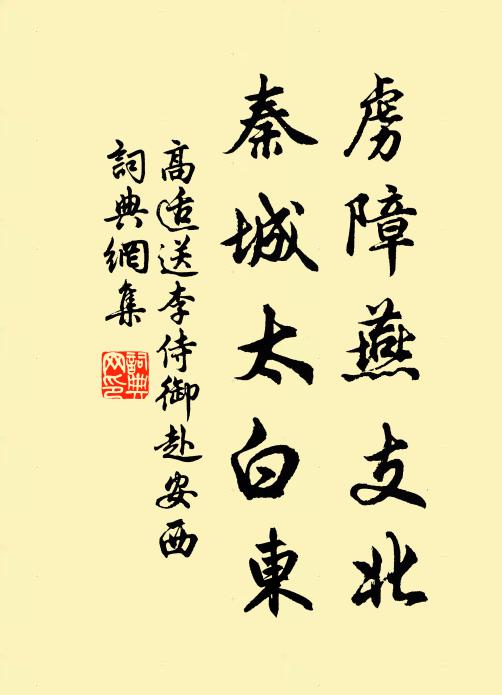 虜障燕支北
秦城太白東
高適送李侍御赴安西
詞典網集
詞典網印